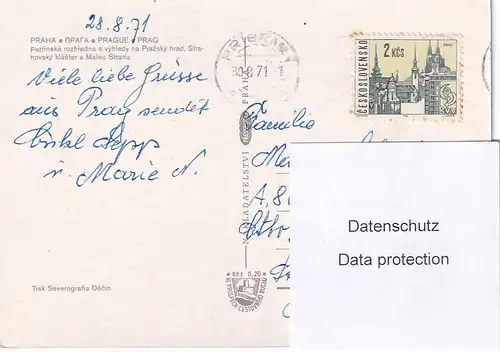 28.8.71
PRAHA • ПРАГА • PRAGUE • PRAG
Petřínská rozhledna s výhledy na Pražský hrad, Stra-
hovský klášter a Malou Stranu
Viele liebe Grüsse
aus Prag sendet
Onkel Sepp
u. Marie N.
Tisk Severografia Děčín
NAKLADATELSTVÍ
PRAHA
Kčs 0,20
VE PROSPĚCH CESTOVNÍHO RUCHU
PŘÍBRAM 1
30.8.71
ČESKOSLOVENSKO
2 KČS
Familie
A, 8
Datenschutz
Data protection